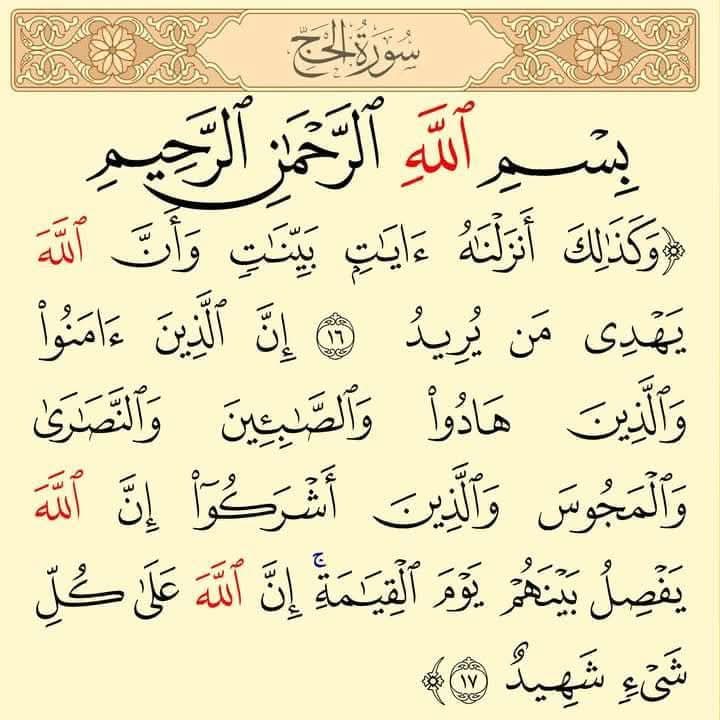 سُورَةُ الحَجِّ
بِسْمِ ٱللَّهِ ٱلرَّحْمَٰنِ ٱلرَّحِيمِ
﴿وَكَذَٰلِكَ أَنزَلْنَٰهُ ءَايَٰتٍۭ بَيِّنَٰتٍ وَأَنَّ ٱللَّهَ
يَهْدِى مَن يُرِيدُ ١٦ إِنَّ ٱلَّذِينَ ءَامَنُوا۟
وَٱلَّذِينَ هَادُوا۟ وَٱلصَّٰبِـِٔينَ وَٱلنَّصَٰرَىٰ
وَٱلْمَجُوسَ وَٱلَّذِينَ أَشْرَكُوٓا۟ إِنَّ ٱللَّهَ
يَفْصِلُ بَيْنَهُمْ يَوْمَ ٱلْقِيَٰمَةِ ۚ إِنَّ ٱللَّهَ عَلَىٰ كُلِّ
شَىْءٍ شَهِيدٌ ١٧﴾